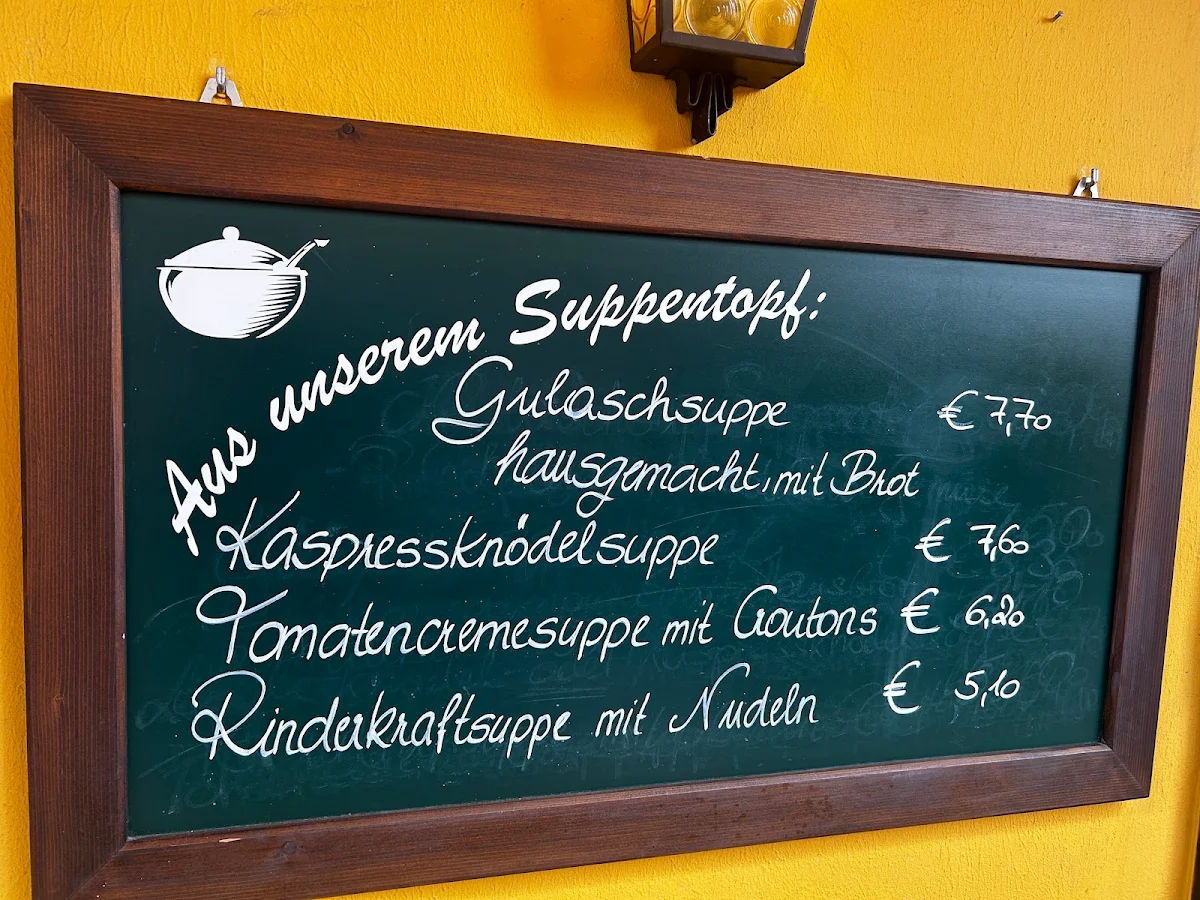 Aus unserem Suppentopf:
Gulaschsuppe € 7,70
hausgemacht, mit Brot
Kaspressknödelsuppe € 7,60
Tomatencremesuppe mit Croutons € 6,20
Rinderkraftsuppe mit Nudeln € 5,10